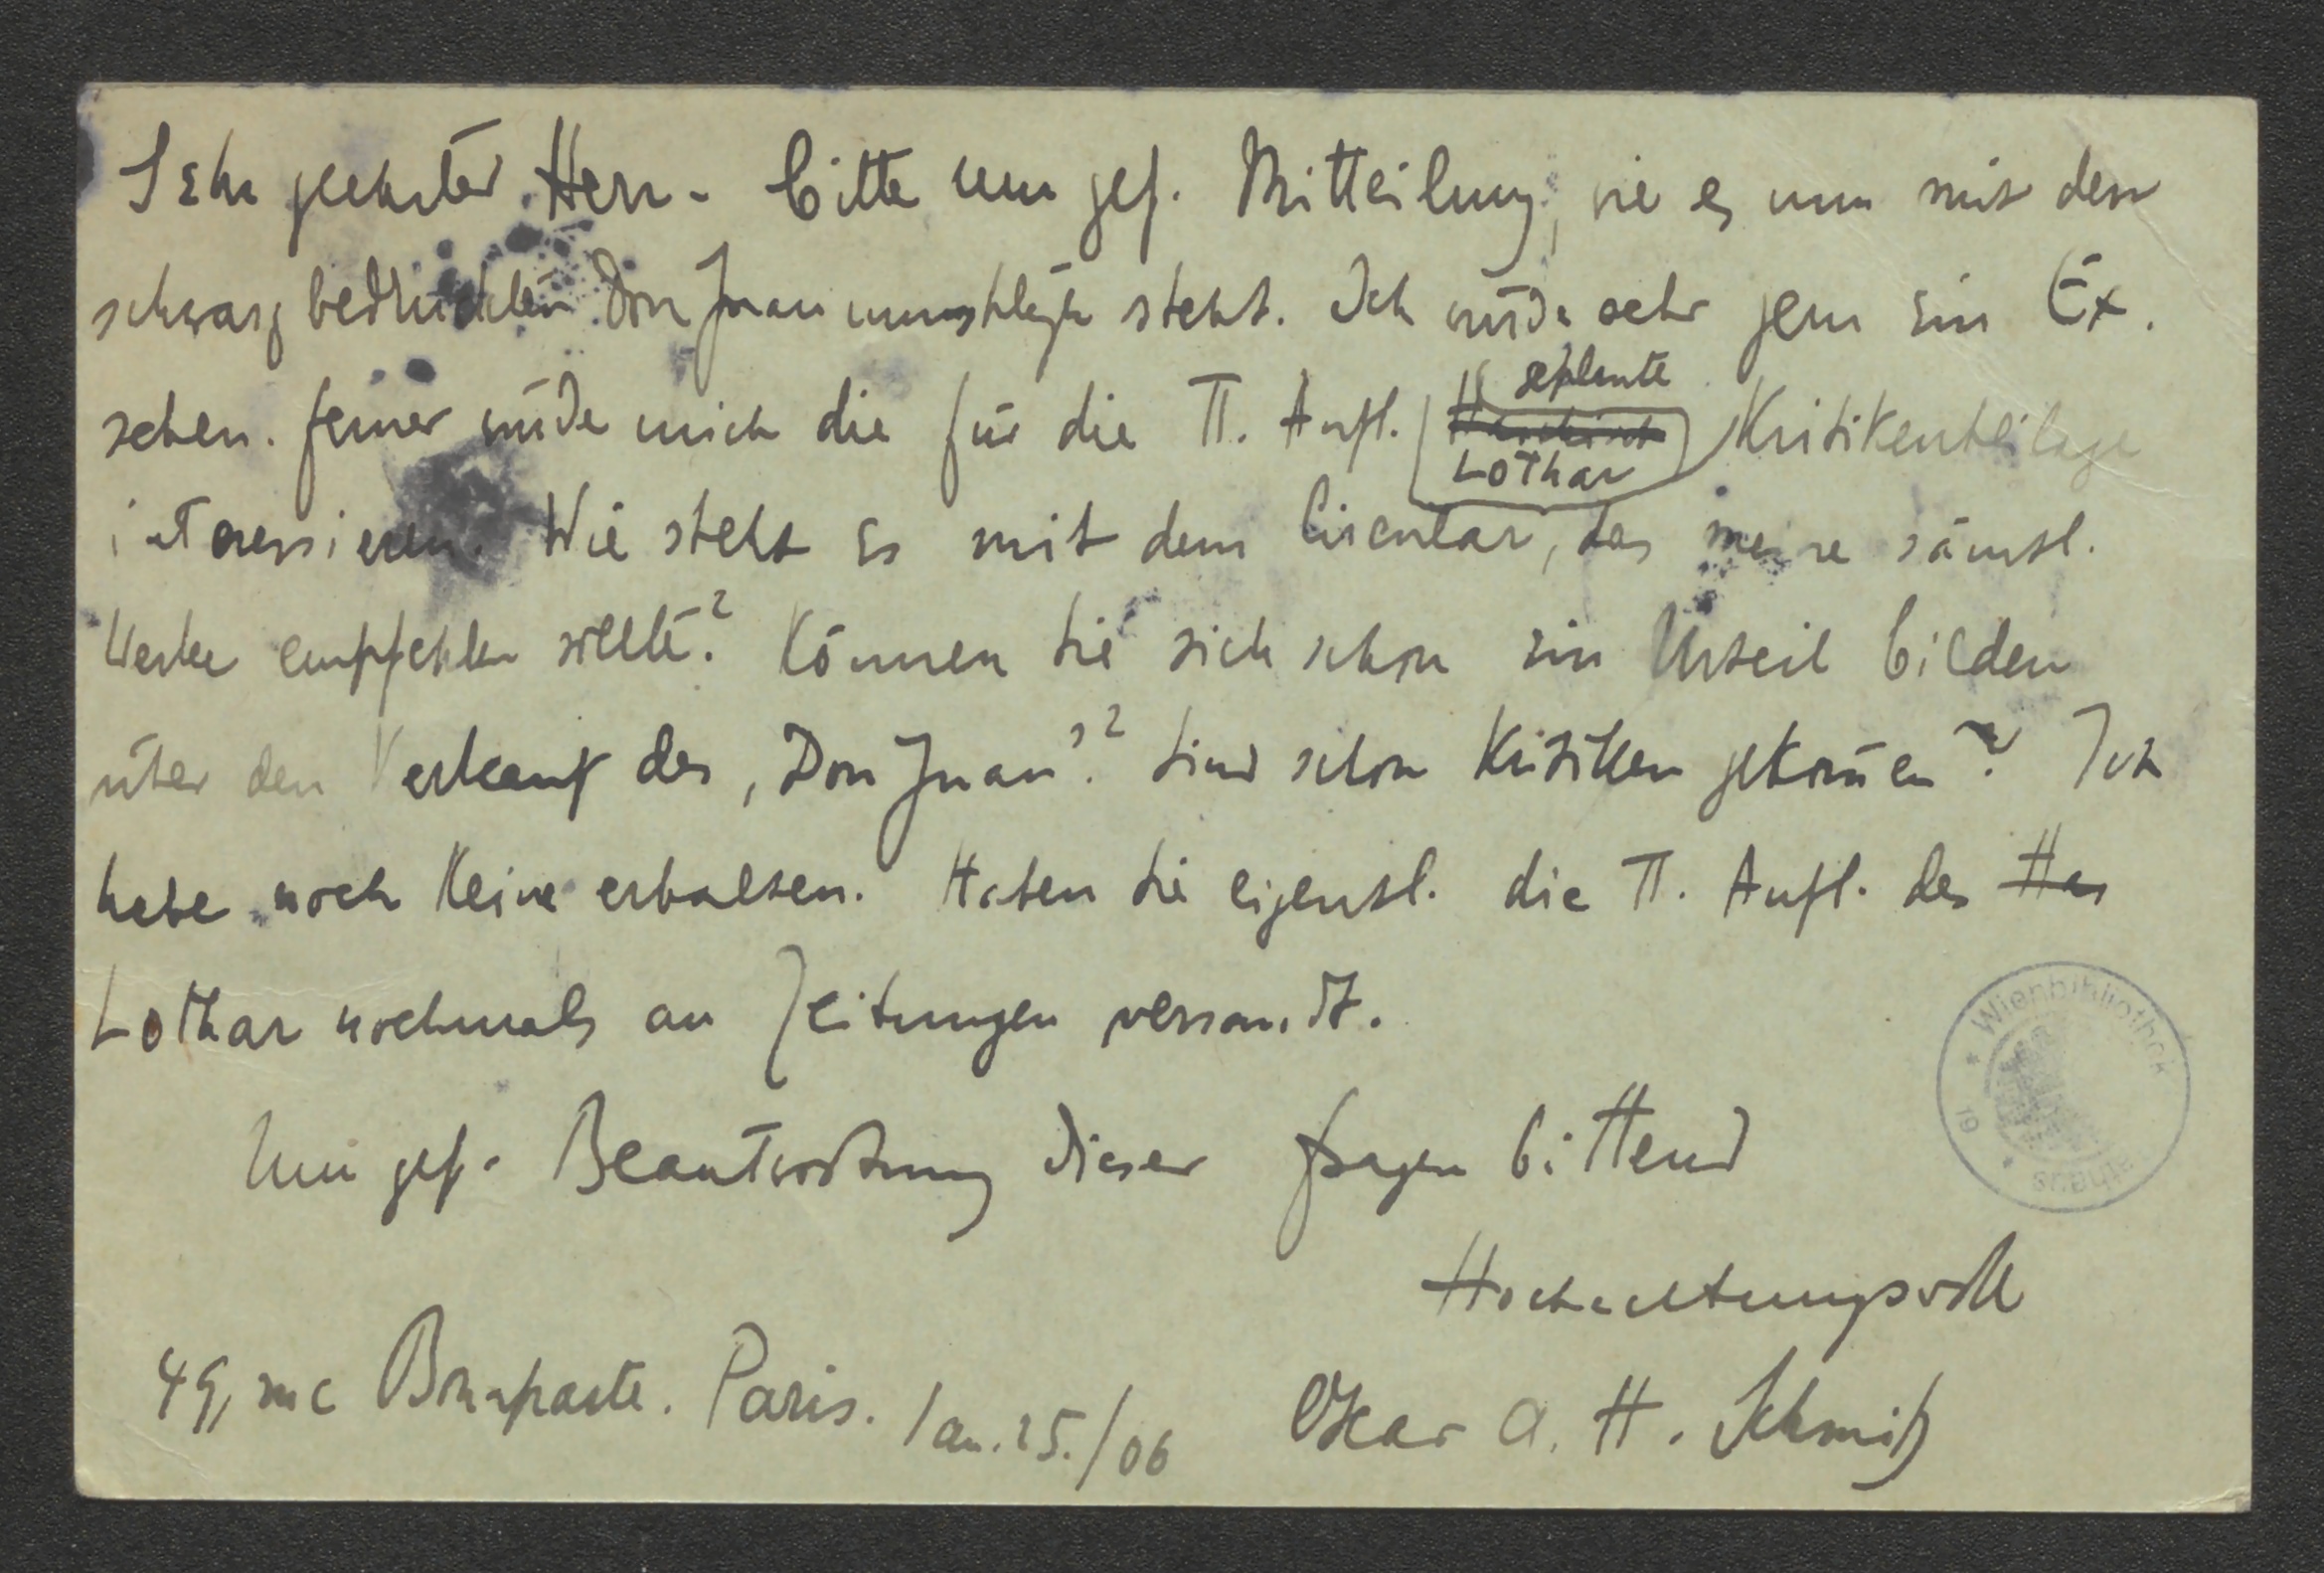 Sehr geehrter Herr - bitte um gef. Mitteilung, wie es nun mit dem
schwarz bedruckten Don Juan umschlage steht. Ich würde sehr gern ein Ex.
sehen. ferner würde mich die für die II. Aufl. Haschisch Lothar geplante Kritikenbeilage
interessieren. Wie steht es mit dem Circular, das meine sämtl.
Werke empfehlen sollte? Können Sie sich schon ein Urteil bilden
über den Verkauf des ‚Don Juan'? Sind schon Kritiken gekom̄en? Ich
habe noch keine erhalten. Haben Sie eigentl. die II. Aufl. des Has
Lothar nochmals an Zeitungen versandt.
Um gef. Beantwortung dieser fragen bittend
Hochachtungsvoll
49, rue Bonaparte. Paris. Jan. 25./06 Oscar A. H. Schmitz
Wienbibliothek